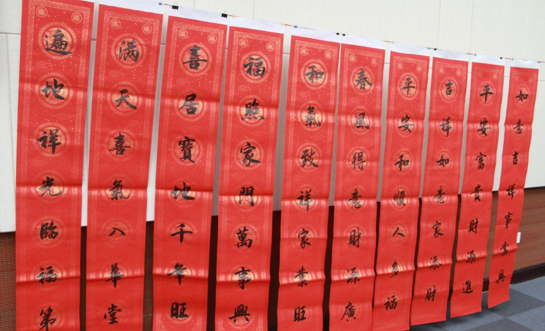 遍地祥光臨福第
满天喜氣入華堂
喜居寶地千年旺
福照家門萬事興
和氣致祥家業旺
春風得意財源廣
平安和順人多福
吉祥如意家添財
平安富貴財源進
如意吉祥事業興